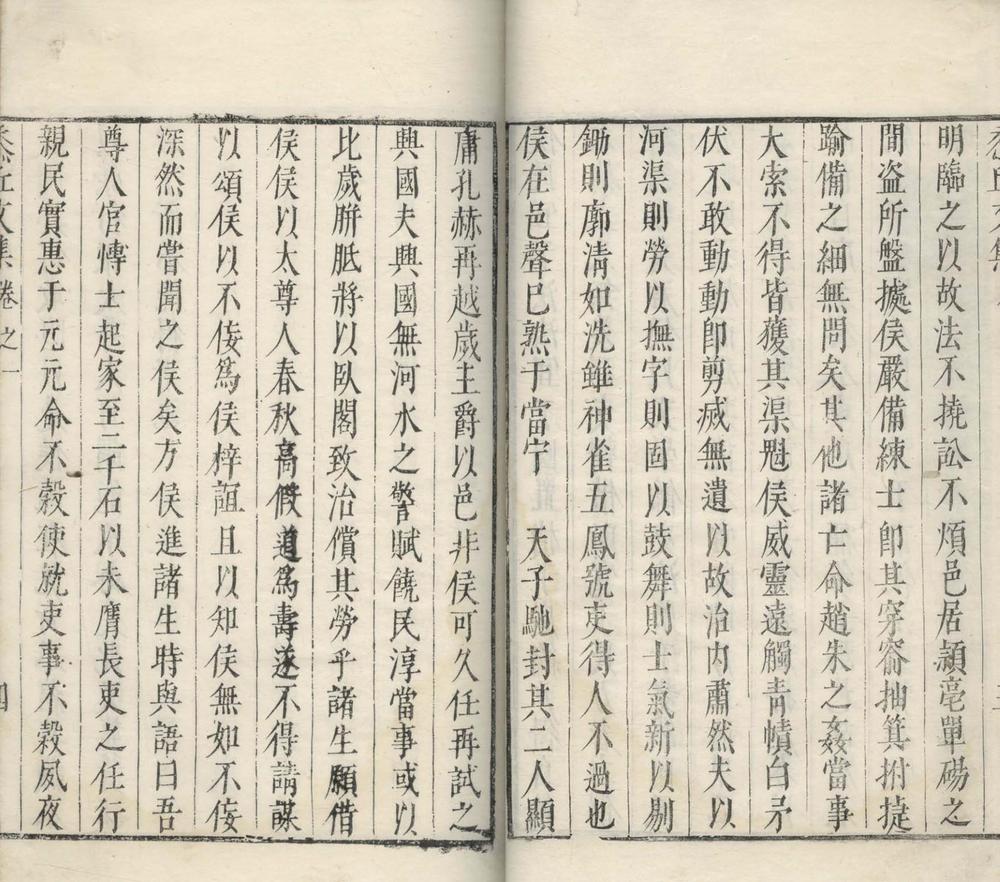 明臨之以故法不撓訟不煩邑居潁亳單碭之
間盗所盤據侯嚴備練士卽其穿窬抽箕拊揵
踰備之細無問矣其他諸亡命趙朱之姦當事
大索不得皆獲其渠魁侯威靈遠觸青幘白矛
伏不敢動動卽剪滅無遺以故治内肅然夫以
河渠則勞以撫字則固以鼓舞則士氣新以剔
鋤則廓清如洗雖神雀五鳳號吏得人不過也
侯在邑聲已熟于當宁　天子馳封其二人顯
庸孔赫再越歲主爵以邑非侯可久任再試之
興國夫興國無河水之警賦饒民淳當事或以
比歲胼胝將以臥閣致治償其勞乎諸生願借
侯侯以太尊人春秋高假道爲壽遂不得請謀
以頌侯以不佞爲侯梓誼且以知侯無如不佞
深然而嘗聞之侯矣方侯進諸生時與語曰吾
尊人官愽士起家至二千石以未膺長吏之任行
親民實惠于元元命不穀使就吏事不穀夙夜
文集卷之一
四